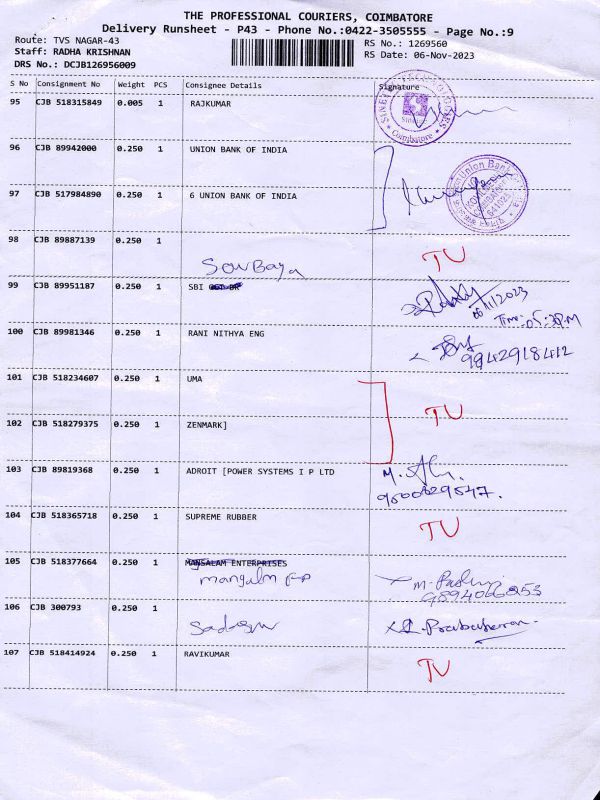 THE PROFESSIONAL COURIERS, COIMBATORE
Delivery Runsheet - P43 - Phone No.:0422-3505555 - Page No.:9
Route: TVS NAGAR-43
RS No.: 1269560
Staff: RADHA KRISHNAN
RS Date: 06-Nov-2023
DRS No.: DCJB126956009
S No Consignment No Weight PCS Consignee Details Signature
95 CJB 518315849 0.005 1 RAJKUMAR
Coimbatore
96 CJB 89942000 0.250 1 UNION BANK OF INDIA
Union Bank
97 CJB 517984890 0.250 1 6 UNION BANK OF INDIA
98 CJB 89887139 0.250 1 TU
99 CJB 89951187 0.250 1 SBI
06/11/2023
Time: 05:30PM
100 CJB 89981346 0.250 1 RANI NITHYA ENG
9942918412
101 CJB 518234607 0.250 1 UMA
TU
102 CJB 518279375 0.250 1 ZENMARK]
103 CJB 89819368 0.250 1 ADROIT [POWER SYSTEMS I P LTD
104 CJB 518365718 0.250 1 SUPREME RUBBER
TU
105 CJB 518377664 0.250 1 MANGALAM ENTERPRISES
106 CJB 300793 0.250 1
Prabaharan
107 CJB 518414924 0.250 1 RAVIKUMAR
TU